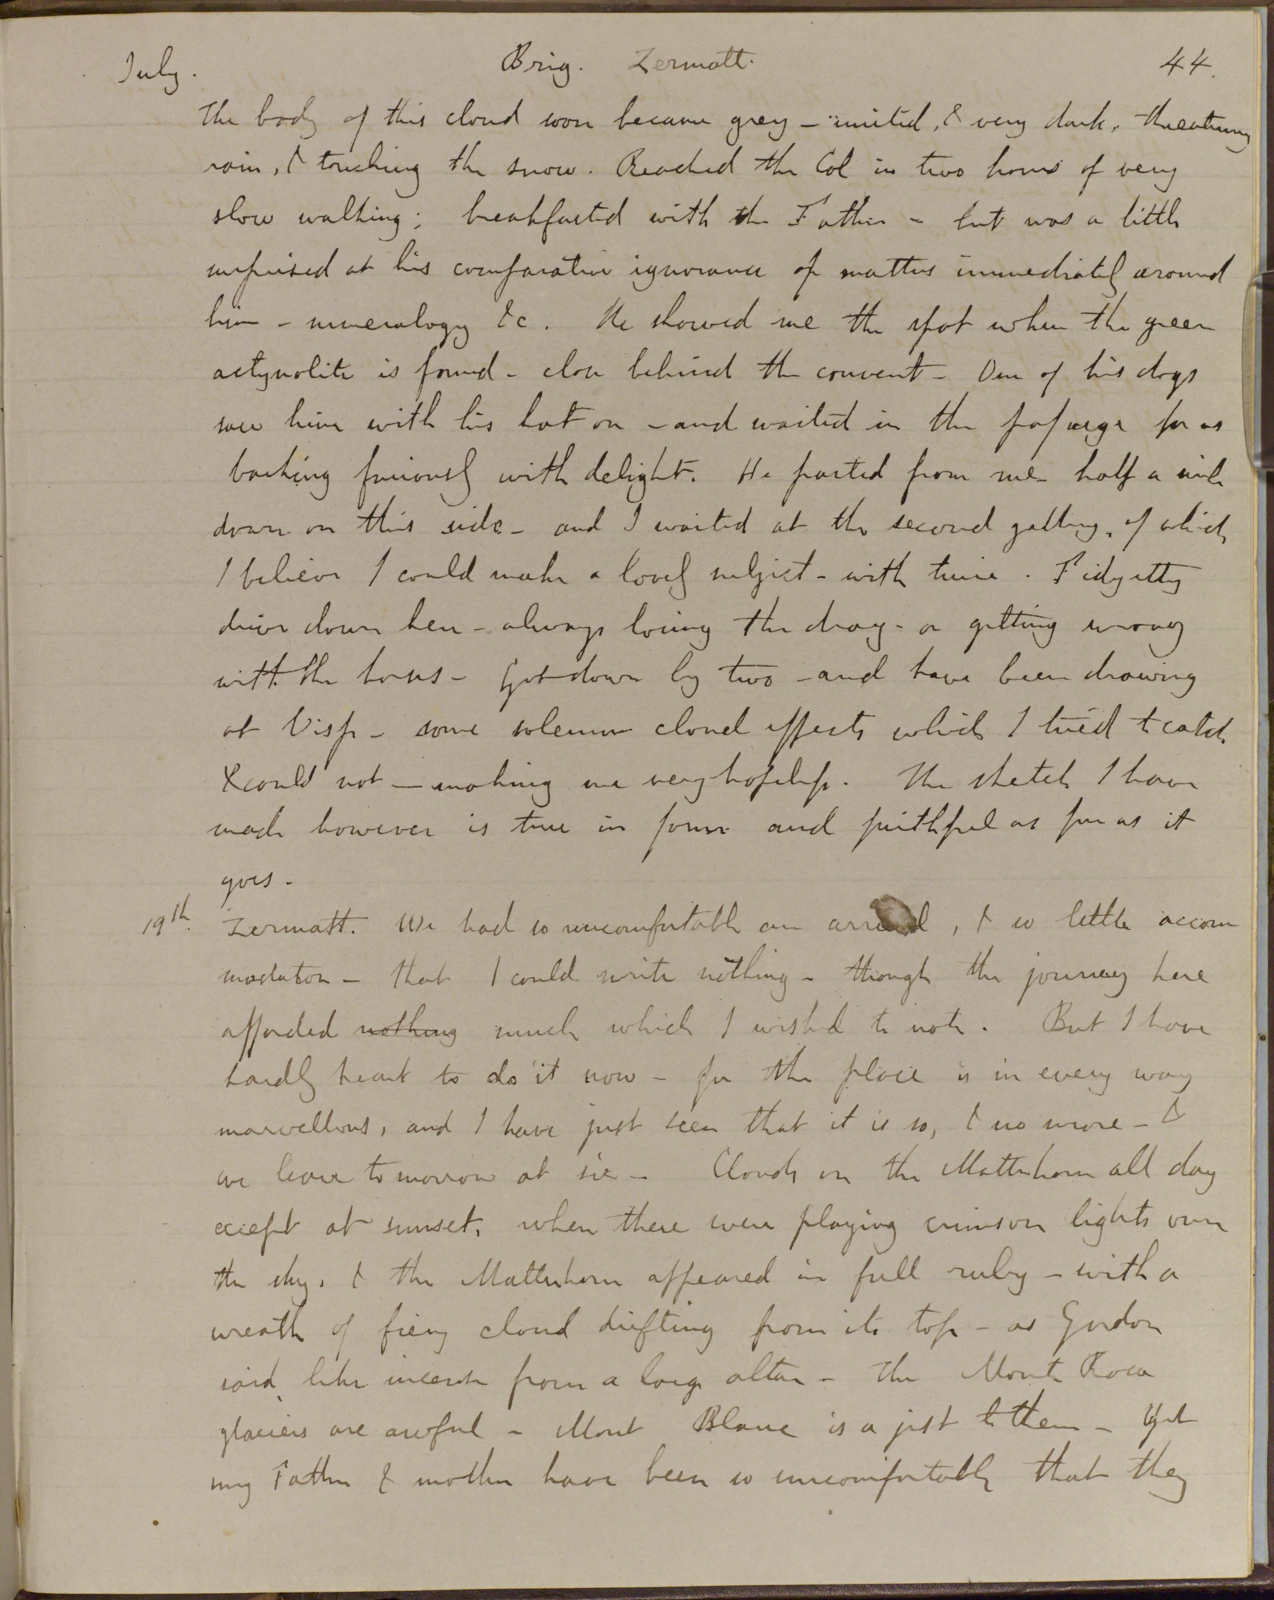 July. Brig. Zermatt. 44.
The body of this cloud soon became grey - united, & very dark, threatening
rain, & touching the snow. Reached the Col in two hours of very
slow walking; breakfasted with the Father - but was a little
surprised at his comparative ignorance of matters immediately around
him - mineralogy &c. He showed me the spot where the green
actynolite is found - close behind the convent - One of his dogs
saw him with his hat on - and waited in the passage for us
barking furiously with delight. He parted from me half a mile
down on this side - and I waited at the second gallery, of which
I believe I could make a lovely subject - with time. Fidgetty
drive down here - always losing the drag - or getting wrong
with the horses - Got down by two - and have been drawing
at Visp - some solemn cloud effects which I tried to catch
& could not - making me very hopeless. The sketch I have
made however is true in form and faithful as far as it
goes -
19th. Zermatt. We had so uncomfortable an arrival, & so little accom
modation - that I could write nothing - though the journey here
afforded nothing much which I wished to note. But I have
hardly heart to do it now - for the place is in every way
marvellous, and I have just seen that it is so, & no more - &
we leave tomorrow at six - Clouds on the Matterhorn all day
except at sunset, when there were playing crimson lights over
the sky, & the Matterhorn appeared in full ruby - with a
wreath of fiery cloud drifting from its top - as Gordon
said, like incense from a large altar - The Monte Rosa
glaciers are awful - Mont Blanc is a jest to them - Yet
my Father & mother have been so uncomfortable that they